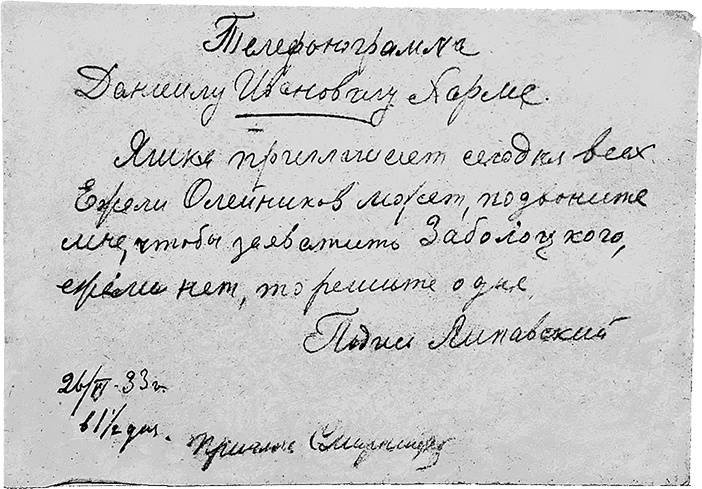 Телефонограмма
Даниилу Ивановичу Хармс.
Яшка приглашает сегодня всех.
Ежели Олейников может, позвоните
мне, чтобы захватить Заболоцкого,
ежели нет, то решите о дне.
Подпись Липавский
26/ 33 г.
в 1 1/2 дня.
Приняла